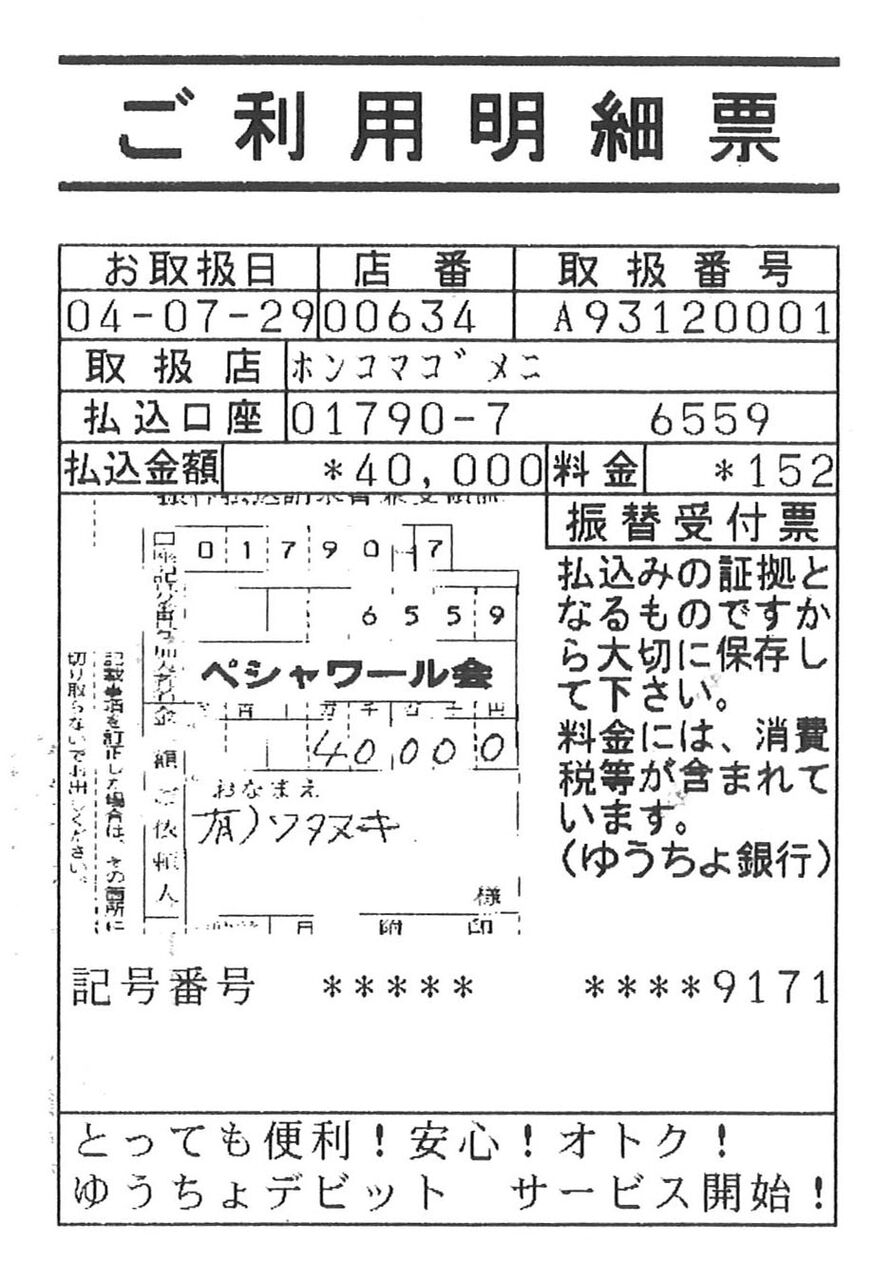 ご利用明細票
お取扱日 店番 取扱番号
04-07-29 00634 A93120001
取扱店 ホンコマゴメニ
払込口座 01790-7 6559
払込金額 *40,000 料金 *152
振替受付票
払込みの証拠と
なるものですか
ら大切に保存し
て下さい。
料金には、消費
税等が含まれて
います。
(ゆうちょ銀行)
01790-7
6559
ペシャワール会
40000
おなまえ
有)ソタヌキ
様
記載事項を訂正した場合は、その箇所に
切り取らないでお出しください。
記号番号 ***** ****9171
とっても便利!安心!オトク!
ゆうちょデビット サービス開始!